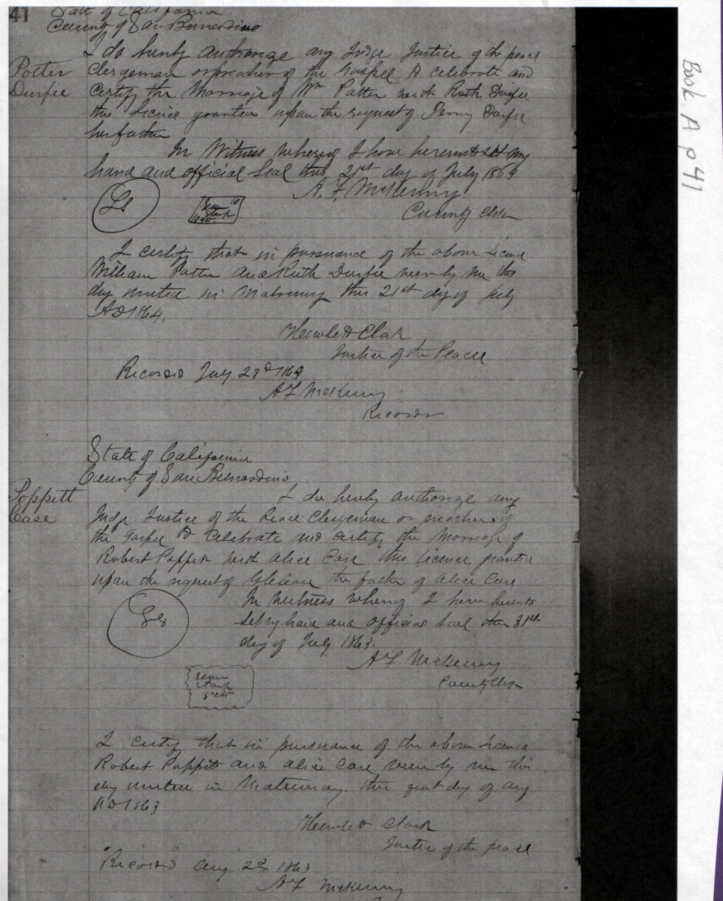 41
State of California
County of San Bernardino
I do hereby authorize any Judge Justice of the peace
Potter
Durfee
Clergeman or preacher of the Gospel to celebrate and
certify the Marriage of Wm Potter with Ruth Durfee
this License granted upon the request of Durfee
her father
In Witness whereof I have hereunto set my
hand and official Seal this 21st day of July 186
A. F. McKenny
County Clerk
Ls
I certify that in pursuance of the above License
William Potter and Ruth Durfee were by me this
day united in Matrimony this 21st day of July
AD 1864.
Clark
Justice of the Peace
Record July 23d 186
A F McKenny
Recorder
State of California
County of San Bernardino
Poppett
Case
I do hereby authorize any
Judge Justice of the Peace Clergeman or preacher of
the Gospel to Celebrate and certify the Marriage of
Robert Poppett with Alice Case this License granted
upon the request of the father of Alice Case
In Witness whereof I have hereunto
set my hand and official Seal this 31st
day of July 1863.
A F McKenny
County Clerk
Ls
I certify that in pursuance of the above License
Robert Poppett and Alice Case were by me this
day united in Matrimony this day of Aug
AD 1863
Clark
Justice of the peace
Record Aug 2d 1863
A F McKenny
Book A p 41